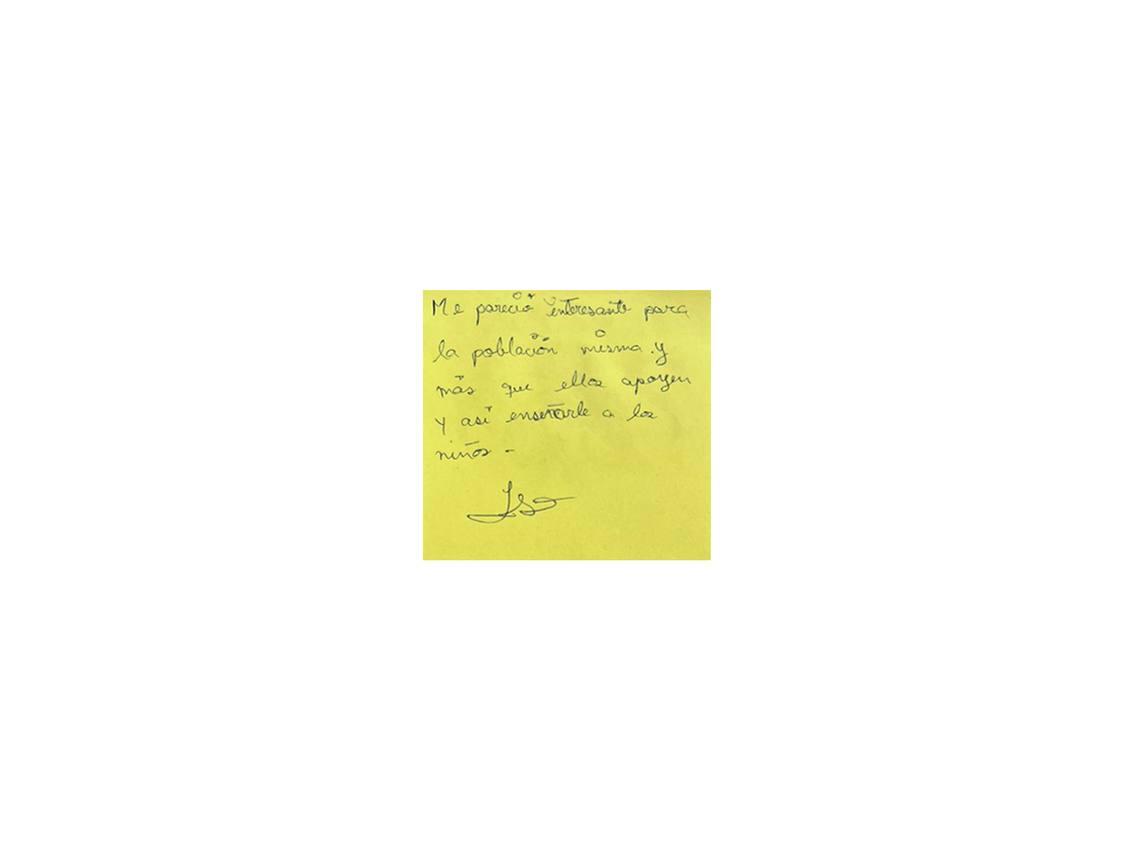 Me pareció interesante para
la población misma. y
más que ellos apoyen
y así enseñarle a los
niños -